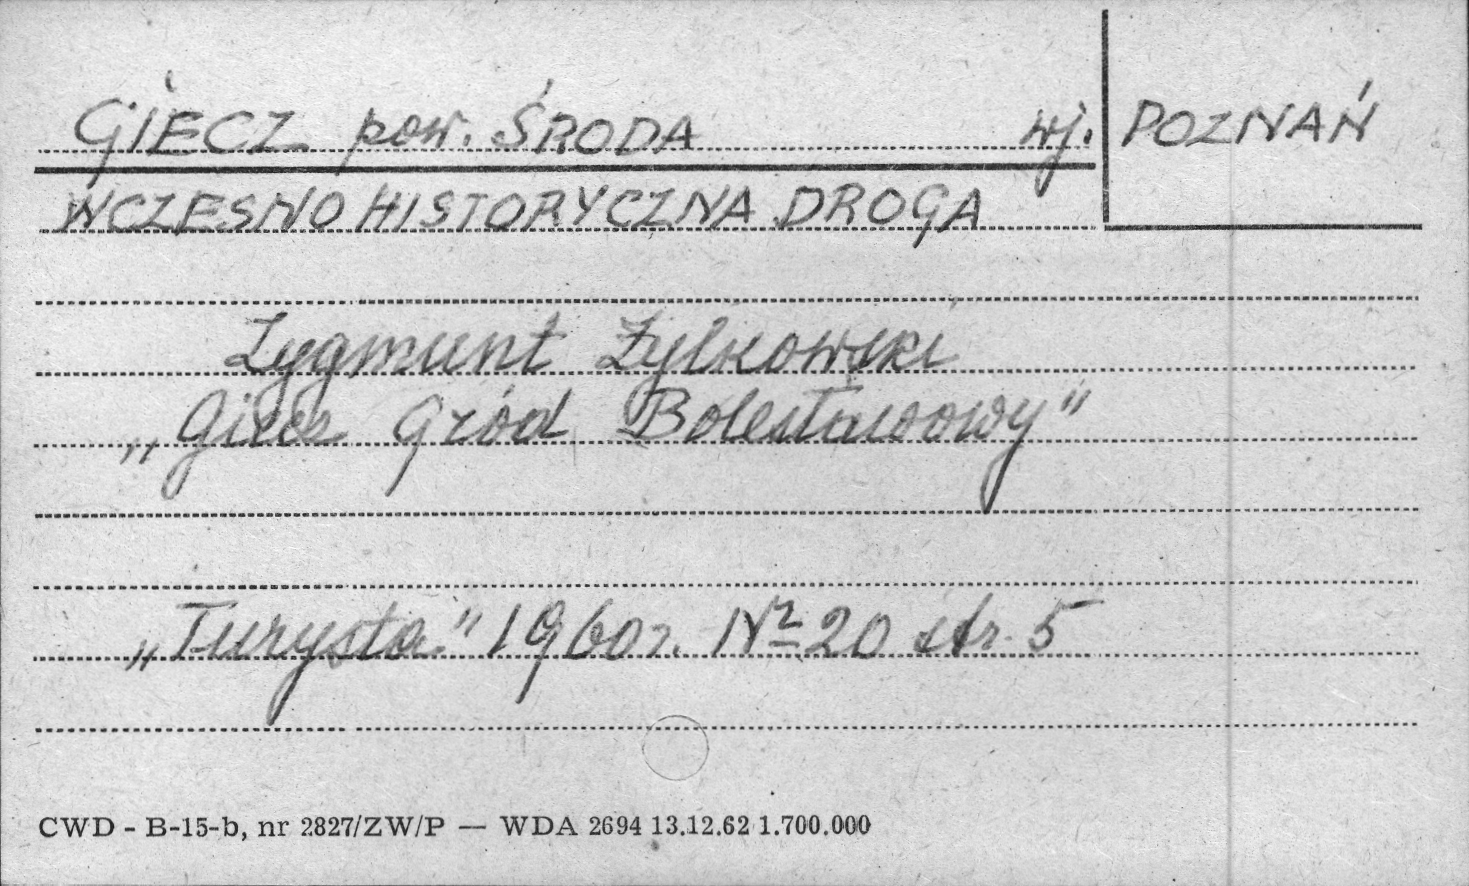 GIECZ pow. ŚRODA wj. POZNAŃ
WCZESNOHISTORYCZNA DROGA
Zygmunt Żylkowski
„Giecz Gród Bolesławowy”
„Turysta” 1960 r. Nr 20 str. 5
CWD - B-15-b, nr 2827/ZW/P — WDA 2694 13.12.62 1.700.000